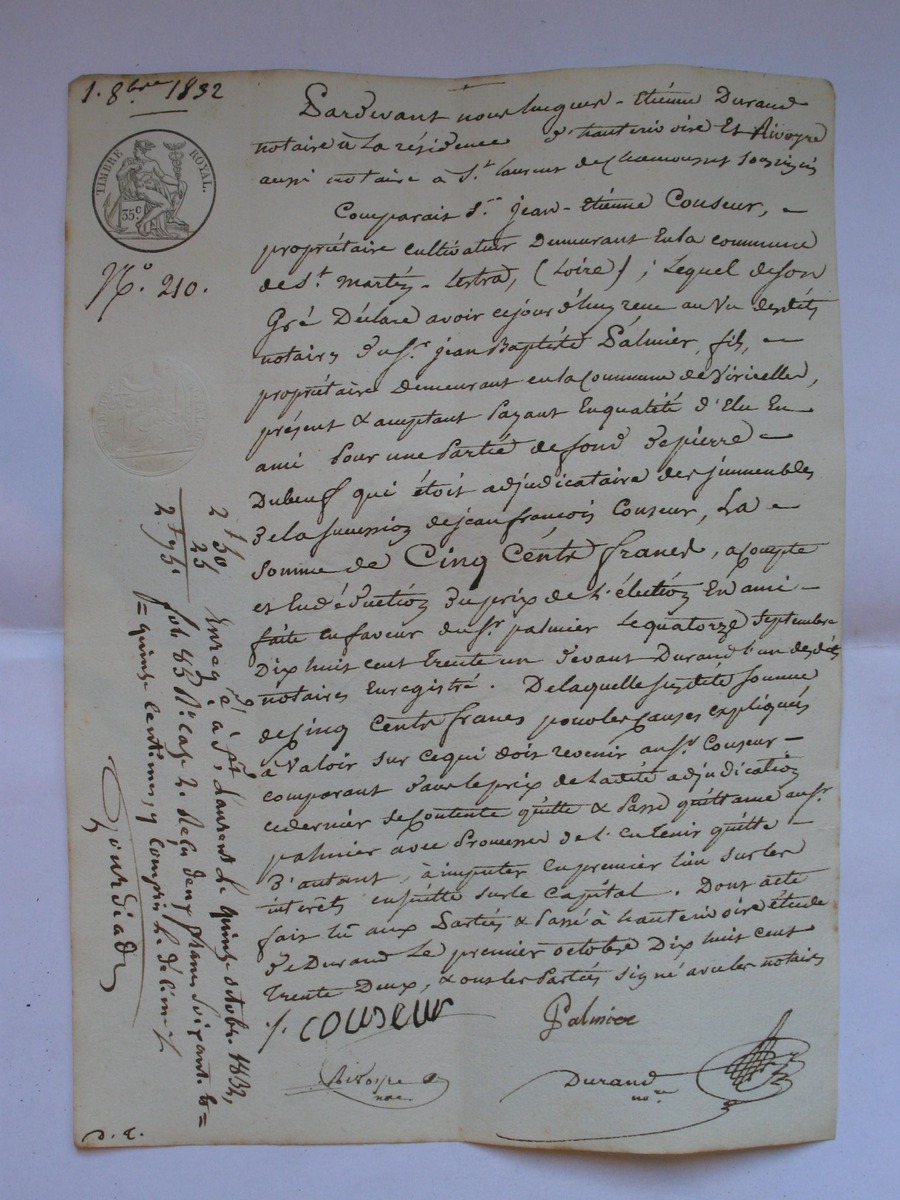 1. 8bre 1832
TIMBRE ROYAL.
35c
No. 210.
Pardevant nous Etiénne Durand
notaire à La résidence d'hauterivoire Et Rivoyre
aussi notaire à St. Laurent de Chamousset soussignés
Comparait Sr. jean-Etiénne Couseur, -
propriétaire cultivateur Demeurant En la commune
de St. Martin-Lestra, (Loire); Lequel de Son
Gré Déclare avoir cejourd'huy recu au Vu desdits
notaires du Sr. jean Baptiste Palmier, fils, -
propriétaire Demeurant en la Commune de Viricelles,
présent & acceptant Payant En qualité d'Elu En
ami Pour une Partie de fond de pierre -
Dubeuf qui étoit adjudicataire des jmmeubles
De la succession de jean francois Couseur, La -
Somme de Cinq Cents francs, a Compte
et En déduction du prix de L'élection En ami -
faite En faveur du Sr. palmier Le quatorze Septembre
Dix huit cent trente un devant Durand L'un desdits
notaires Enregistré. De laquelle susdite Somme
de Cinq Cents francs pour les Causes expliquées
à Valoir sur ce qui doit revenir au Sr. Couseur -
comparant dans le prix de la dite adjudication
ce dernier se Contente quitte & Passe quittance au Sr.
palmier avec Promesse de L'en tenir quitte -
D'autant, à imputer en premier lieu sur les
interets ensuitte sur le Capital. Dont acte
fait lû aux Parties & Passé à hauterivoire étude
De Durand Le premier octobre Dix huit cent
trente Deux, & ont les Parties signé avec les notaires
j. couseur
Palmier
Rivoyre
nre.
Durand
nore
2f 50
25
2f 75c
Enregé à St. Laurent le quinze octobre 1832,
fol. 85 Ro. case 2. Reçu deux francs soixante et
quinze centimes, y compris le décime
Gourdiad
D. E.